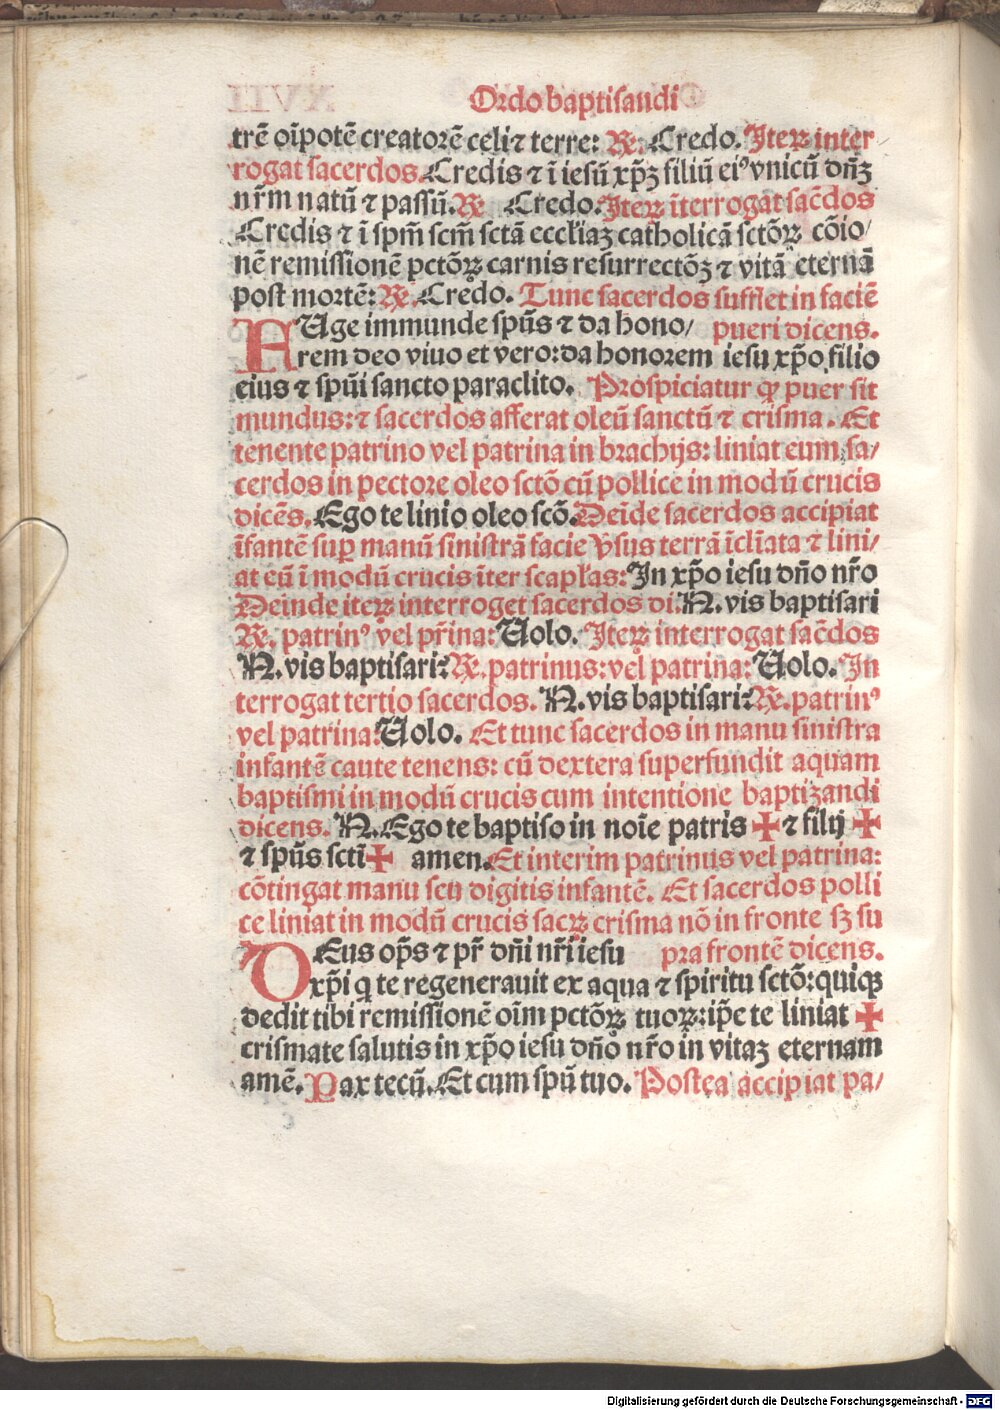 Ordo baptisandi
trē oīpotē creatorē celi ⁊ terre: ℟. Credo. Iterꝝ inter
rogat sacerdos. Credis ⁊ ī iesū xp̄ꝫ filiū eiꝰ vnicū dn̄ꝫ
nr̄m natū ⁊ passū. ℟ Credo. Iterꝝ īterrogat sac̄dos
Credis ⁊ ī spm̄ scm̄ sctā eccl̄iaꝫ catholicā sctōꝝ cōio/
nē remissionē pctōꝝ carnis resurrectōꝫ ⁊ vitā eternā
post mortē: ℟. Credo. Tunc sacerdos sufflet in faciē
AUge immunde spūs ⁊ da hono/ pueri dicens.
rem deo viuo et vero: da honorem iesu xp̄o filio
eius ⁊ spūi sancto paraclito. Prospiciatur ꝙ puer sit
mundus: ⁊ sacerdos afferat oleū sanctū ⁊ crisma. Et
tenente patrino vel patrina in brachijs: liniat eum sa/
cerdos in pectore oleo sctō cū pollice in modū crucis
dicēs. Ego te linio oleo scō. Deīde sacerdos accipiat
īfantē suꝑ manū sinistrā facie v̄sus terrā īcliata ⁊ lini/
at eū ī modū crucis īter scapl̄as: In xp̄o iesu dn̄o nr̄o
Deinde iterꝝ interroget sacerdos di. N. vis baptisari
℟. patrinꝰ vel pr̄ina: Uolo. Iterꝝ interrogat sac̄dos
N. vis baptisari: ℟. patrinus: vel patrina: Uolo. In
terrogat tertio sacerdos. N. vis baptisari: ℟. patrinꝰ
vel patrina: Uolo. Et tunc sacerdos in manu sinistra
infantē caute tenens: cū dextera superfundit aquam
baptismi in modū crucis cum intentione baptizandi
dicens. N. Ego te baptiso in noīe patris ✠ ⁊ filij ✠
⁊ spūs sctī ✠ amen. Et interim patrinus vel patrina:
cōtingat manu seu digitis infantē. Et sacerdos polli
ce liniat in modū crucis sacꝝ crisma nō in fronte sꝫ su
DEus op̄s ⁊ pr̄ dn̄i nr̄i iesu pra frontē dicens.
xp̄i q te regenerauit ex aqua ⁊ spiritu sctō: quiqꝫ
dedit tibi remissionē oīm pctōꝝ tuoꝝ: ip̄e te liniat ✠
crismate salutis in xp̄o iesu dn̄o nr̄o in vitaꝫ eternam
amē. Pax tecū. Et cum spū tuo. Postea accipiat pa/
Digitalisierung gefördert durch die Deutsche Forschungsgemeinschaft - DFG